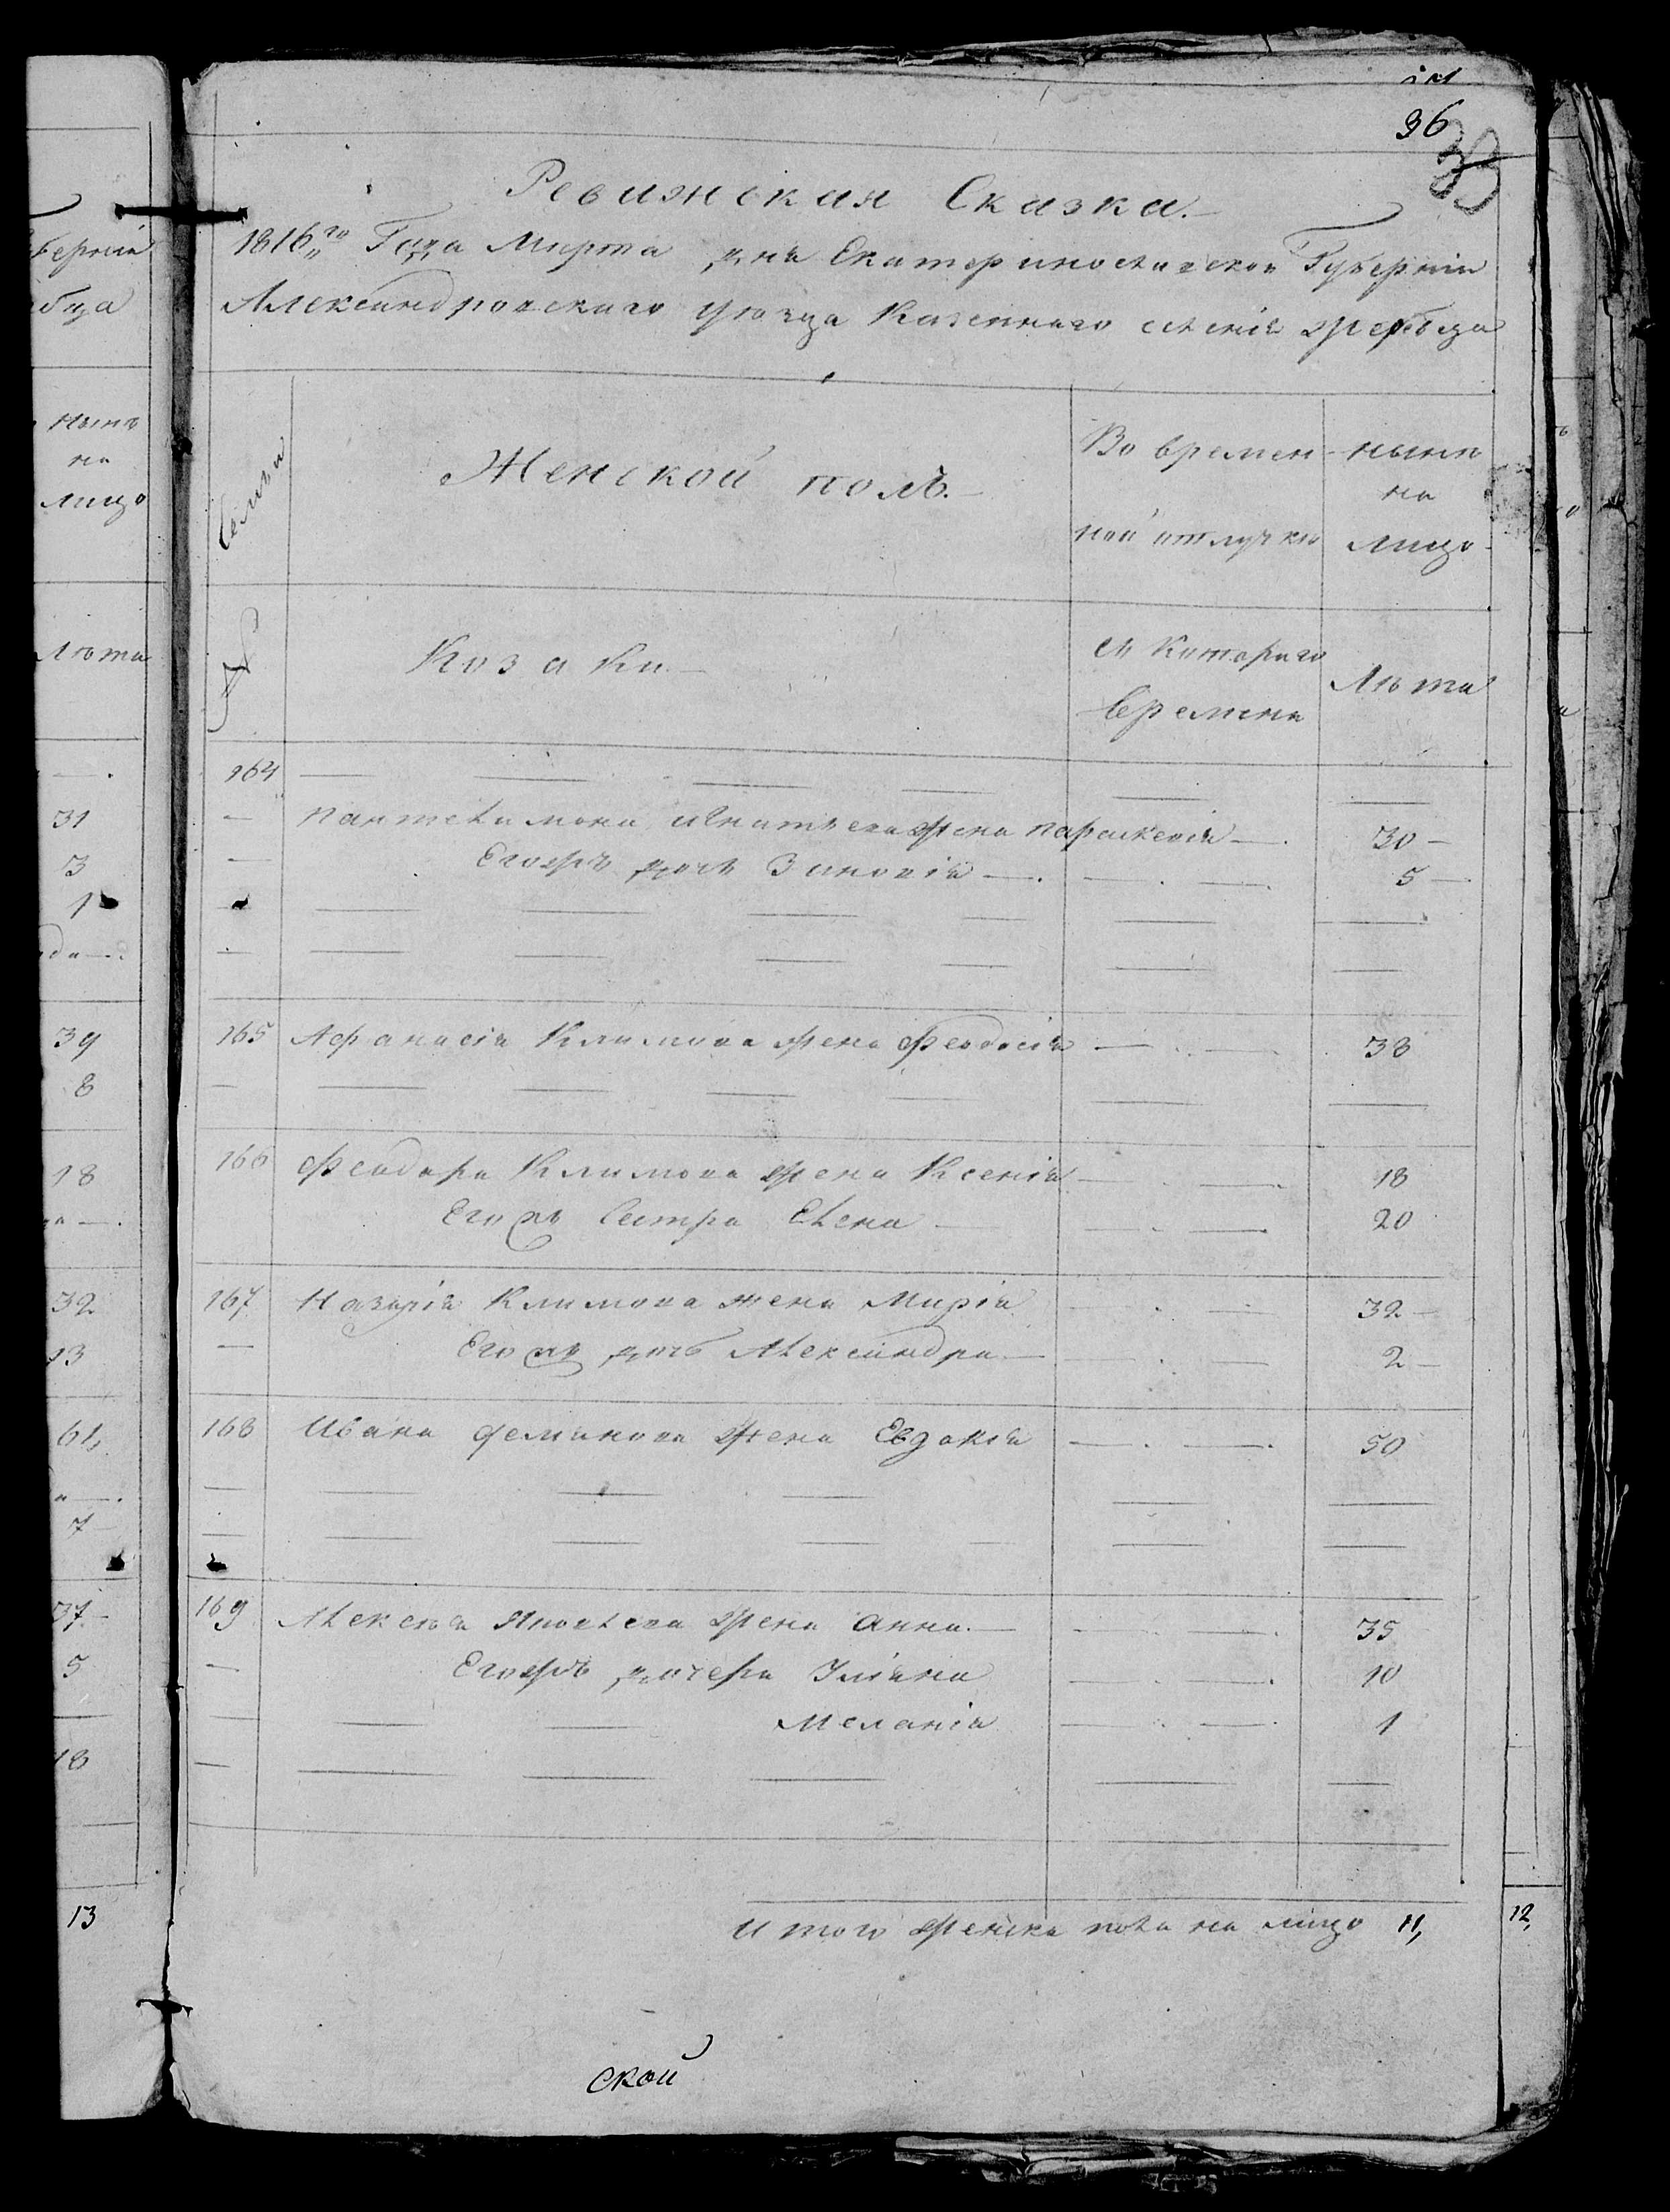 36
33
Ревижская Сказка.
1816го Года Марта дня Екатеринославской Губерніи
Александровского уѣзда Казенного селенія Жеребца
Семьи
Женской полъ.
Во времен-
ной отлучкѣ
нынѣ
на
лицо
№
Козаки.
съ Котораго
времени
Лѣта
164
Пантелимона Игнатьева жена Параскевія 30
Егожъ дочь Зиновія 5
165 Афанасія Климова жена Феодосія 38
166 Феодора Климова жена Ксенія 18
Егожъ Сестра Елена 20
167 Назарія Климова жена Марія 32
Егожъ дочь Александра 2
168 Ивана Феминова жена Евдокія 50
169 Алексѣя Яковлева жена Анна. 35
Егожъ дочери Уліана 10
Меланія 1
Итого женска пола на лицо 11,
ской
берніи
бца
нынѣ
на
лицо
Лѣта
31
3
1
39
8
18
32
13
61,
7
37
5
18
13
12,